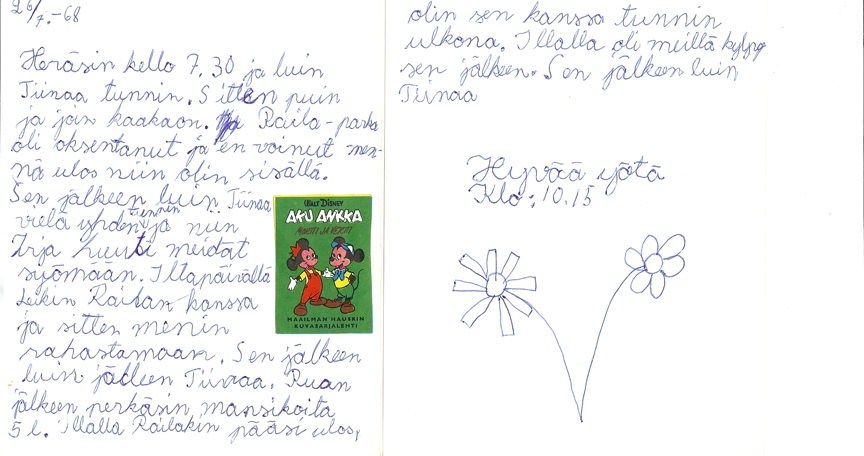 26/7.-68
Heräsin kello 7.30 ja luin
Tiinaa tunnin. Sitten puin
ja join kaakaon. Raila-parka
oli oksentanut ja en voinut men-
nä ulos niin olin sisällä.
Sen jälkeen luin Tiinaa
vielä yhden tunnin ja niin
Irja huusi meidät
syömään. Iltapäivällä
leikin Railan kanssa
ja sitten menin
rahastamaan. Sen jälkeen
luin jälleen Tiinaa. Ruan
jälkeen perkasin mansikoita
5 l. Illalla Railakin pääsi ulos,
WALT DISNEY
AKU ANKKA
MORTTI JA VERTTI
MAAILMAN HAUSKIN
KUVASARJALEHTI
olin sen kanssa tunnin
ulkona. Illalla oli meillä kylpy
sen jälkeen. Sen jälkeen luin
Tiinaa
Hyvää yötä
Klo: 10.15